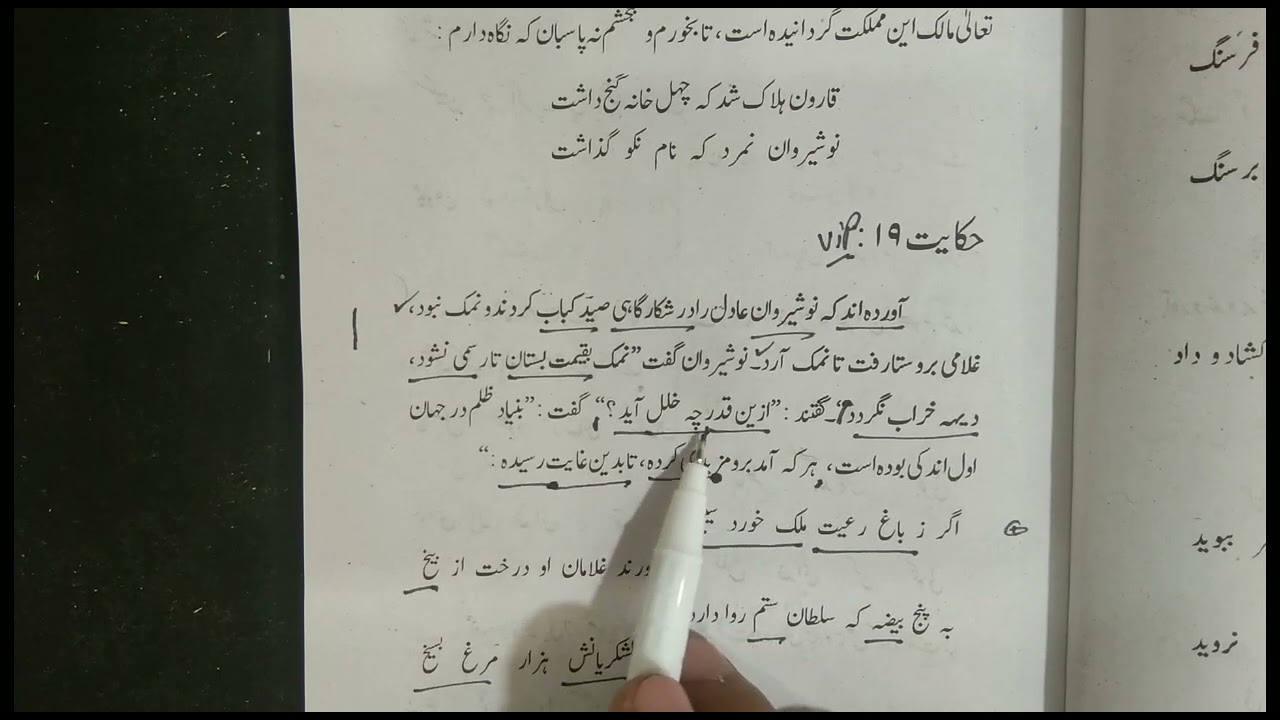 تعالیٰ مالک این مملکت گردانیدہ است، تا بخورم و بخشم نہ پاسبان کہ نگاہ دارم:
قارون ہلاک شد کہ چہل خانہ گنج داشت
نوشیروان نمرد کہ نام نکو گذاشت
حکایت ۱۹: VIP
آوردہ اند کہ نوشیروان عادل را در شکار گاہی صید کباب کردند و نمک نبود،
غلامی بروستا رفت تا نمک آرد۔ نوشیروان گفت ”نمک بقیمت بستان تا رسمی نشود،
دیہہ خراب نگردد“۔ گفتند: ”ازین قدر چہ خلل آید؟“، گفت: ”بنیاد ظلم در جہان
اول اندکی بودہ است، ہر کہ آمد برو کردہ، تا بدین غایت رسیدہ:“
اگر ز باغ رعیت ملک خورد
غلامان او درخت از بیخ
بہ پنج بیضہ کہ سلطان ستم روا دارد
لشکریانش ہزار مرغ بسیخ
فرسنگ
بر سنگ
کشاد و داد
ببوید
نروید